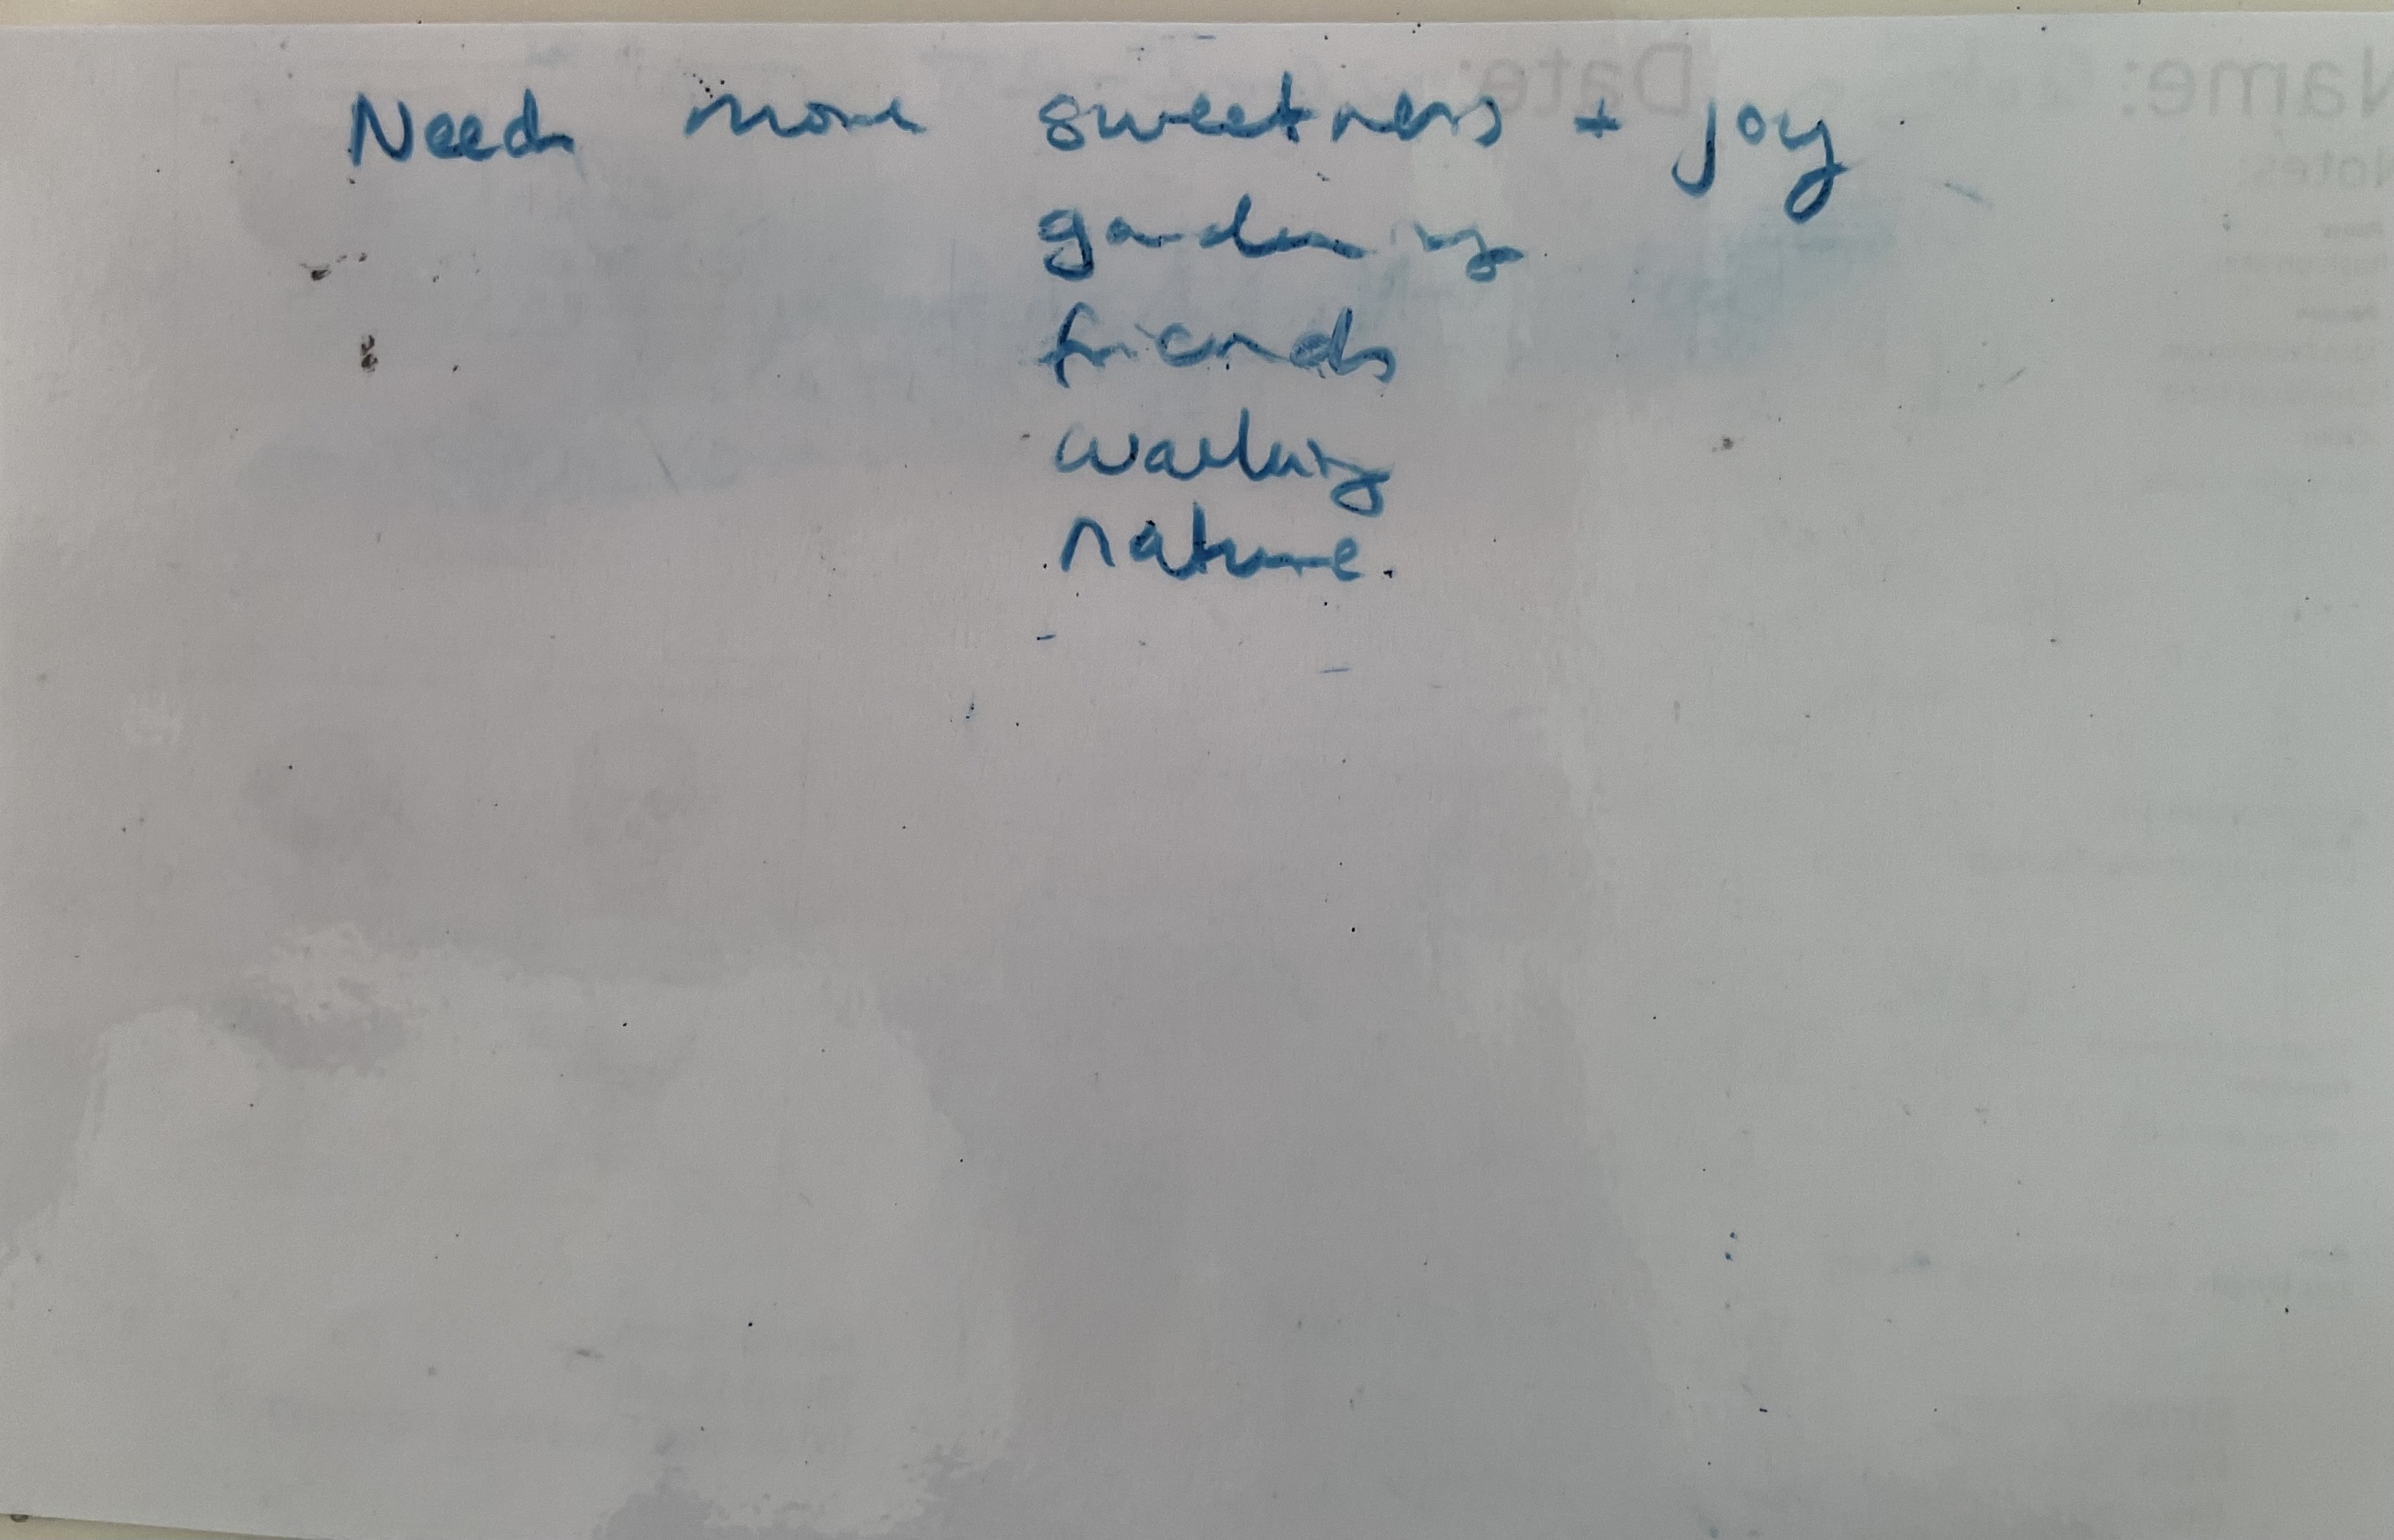 Need more sweetness + joy
gardening
friends
walking
nature.
Date:
Name:
Note